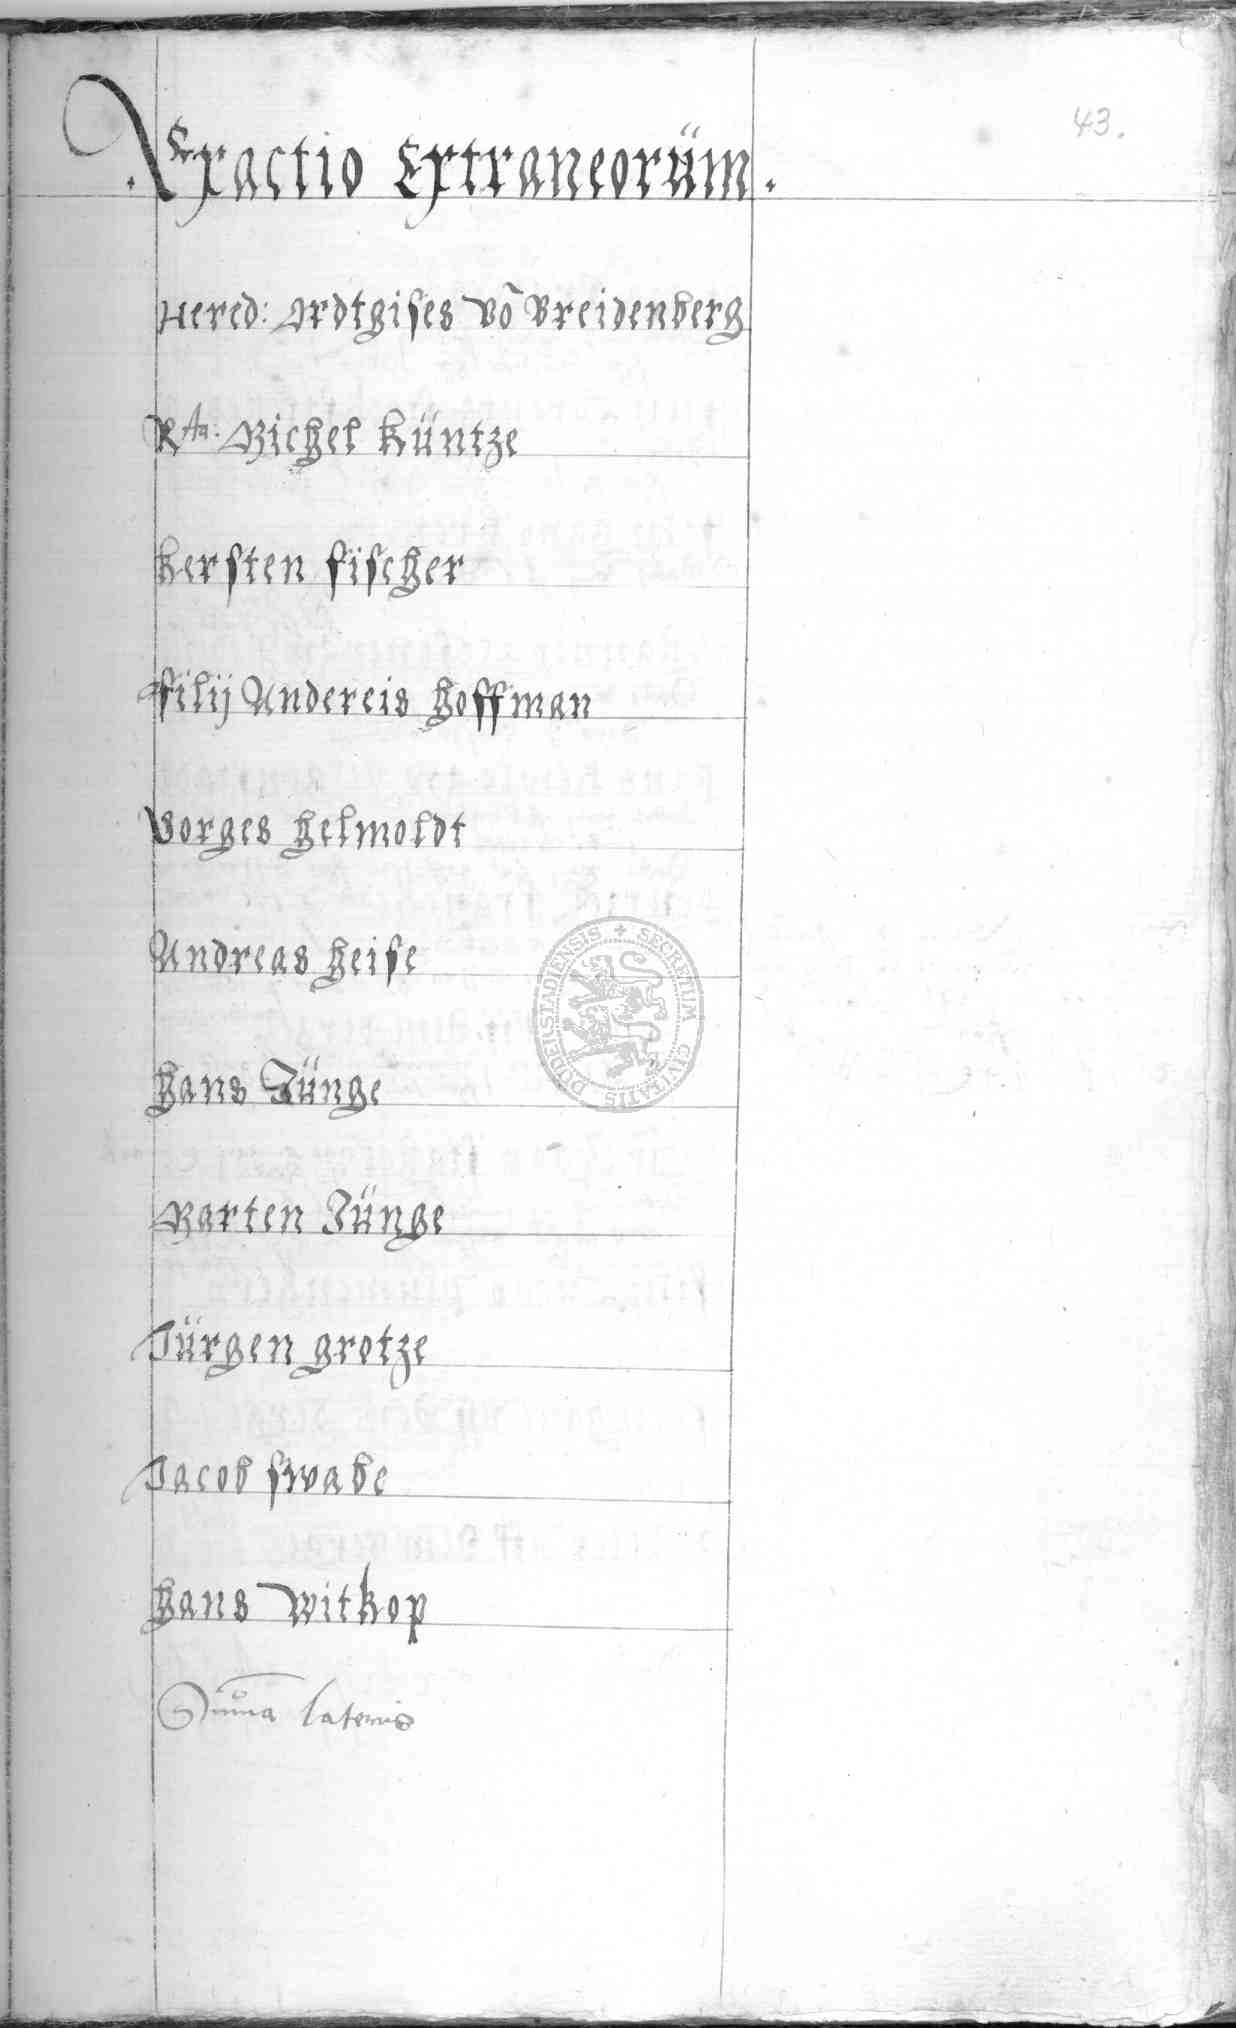 43.
Exactio Extraneorüm.
Hered: Ordtgises vō Breidenberg
Rta. Michel Küntze
Kersten fischer
filij Andereis Hoffman
Borges Helmoldt
Andreas Heise
Hans Jünge
Marten Jünge
Jürgen grotze
Jacob swabe
Hans Witkop
Suma lateris
SECRETUM CIVITATIS DUDERSTADIENSIS